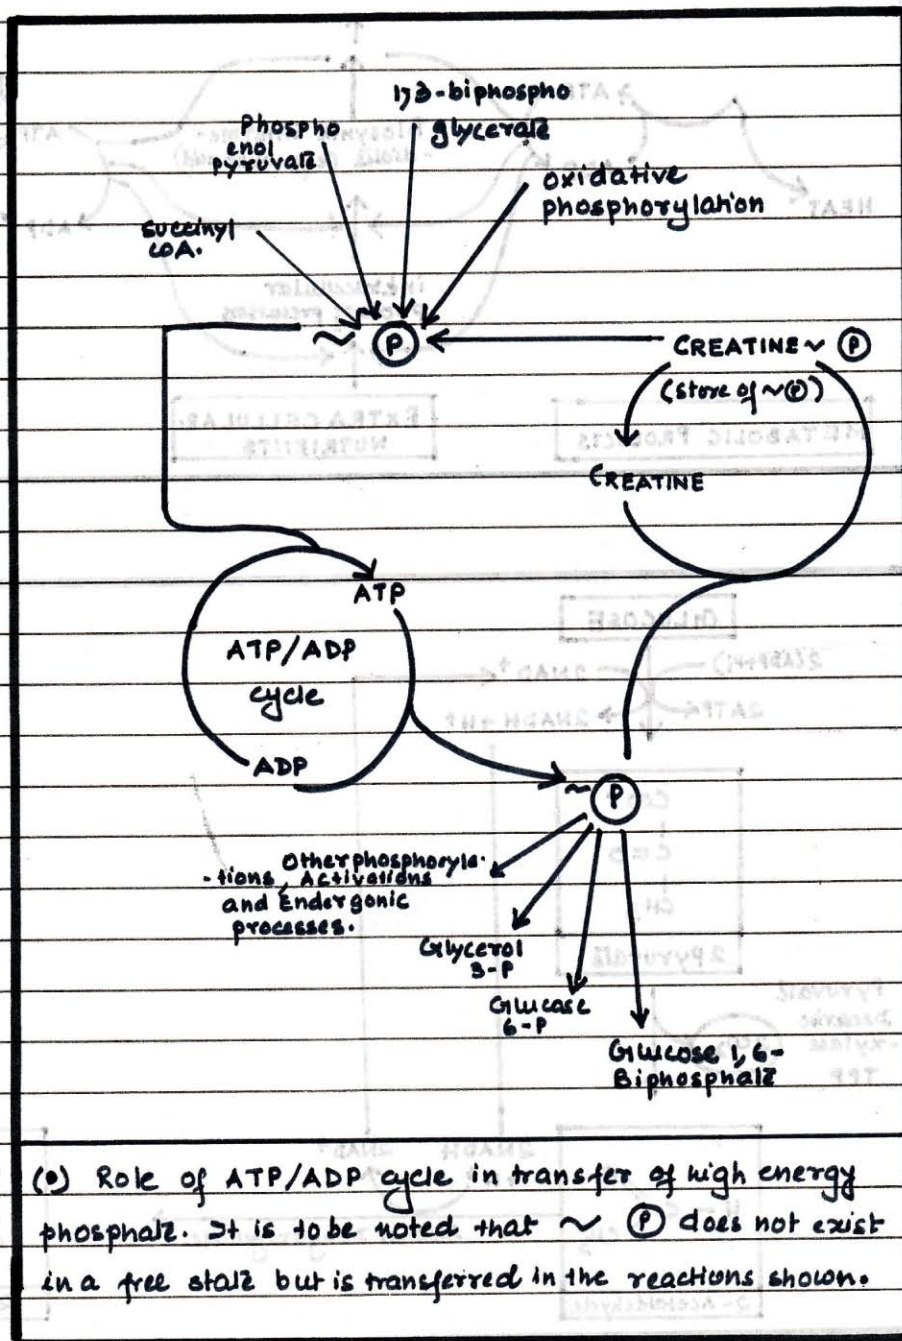 1,3-biphospho
glycerate
Phospho
enol
pyruvate
oxidative
phosphorylation
succinyl
COA.
~ P
CREATINE ~ P
(store of ~P)
CREATINE
ATP
ATP/ADP
cycle
ADP
~ P
Other phosphoryla-
-tions, Activations
and Endergonic
processes.
Glycerol
3-P
Glucase
6-P
Glucose 1,6-
Biphosphate
(•) Role of ATP/ADP cycle in transfer of high energy
phosphate. It is to be noted that ~ P does not exist
in a free state but is transferred in the reactions shown.